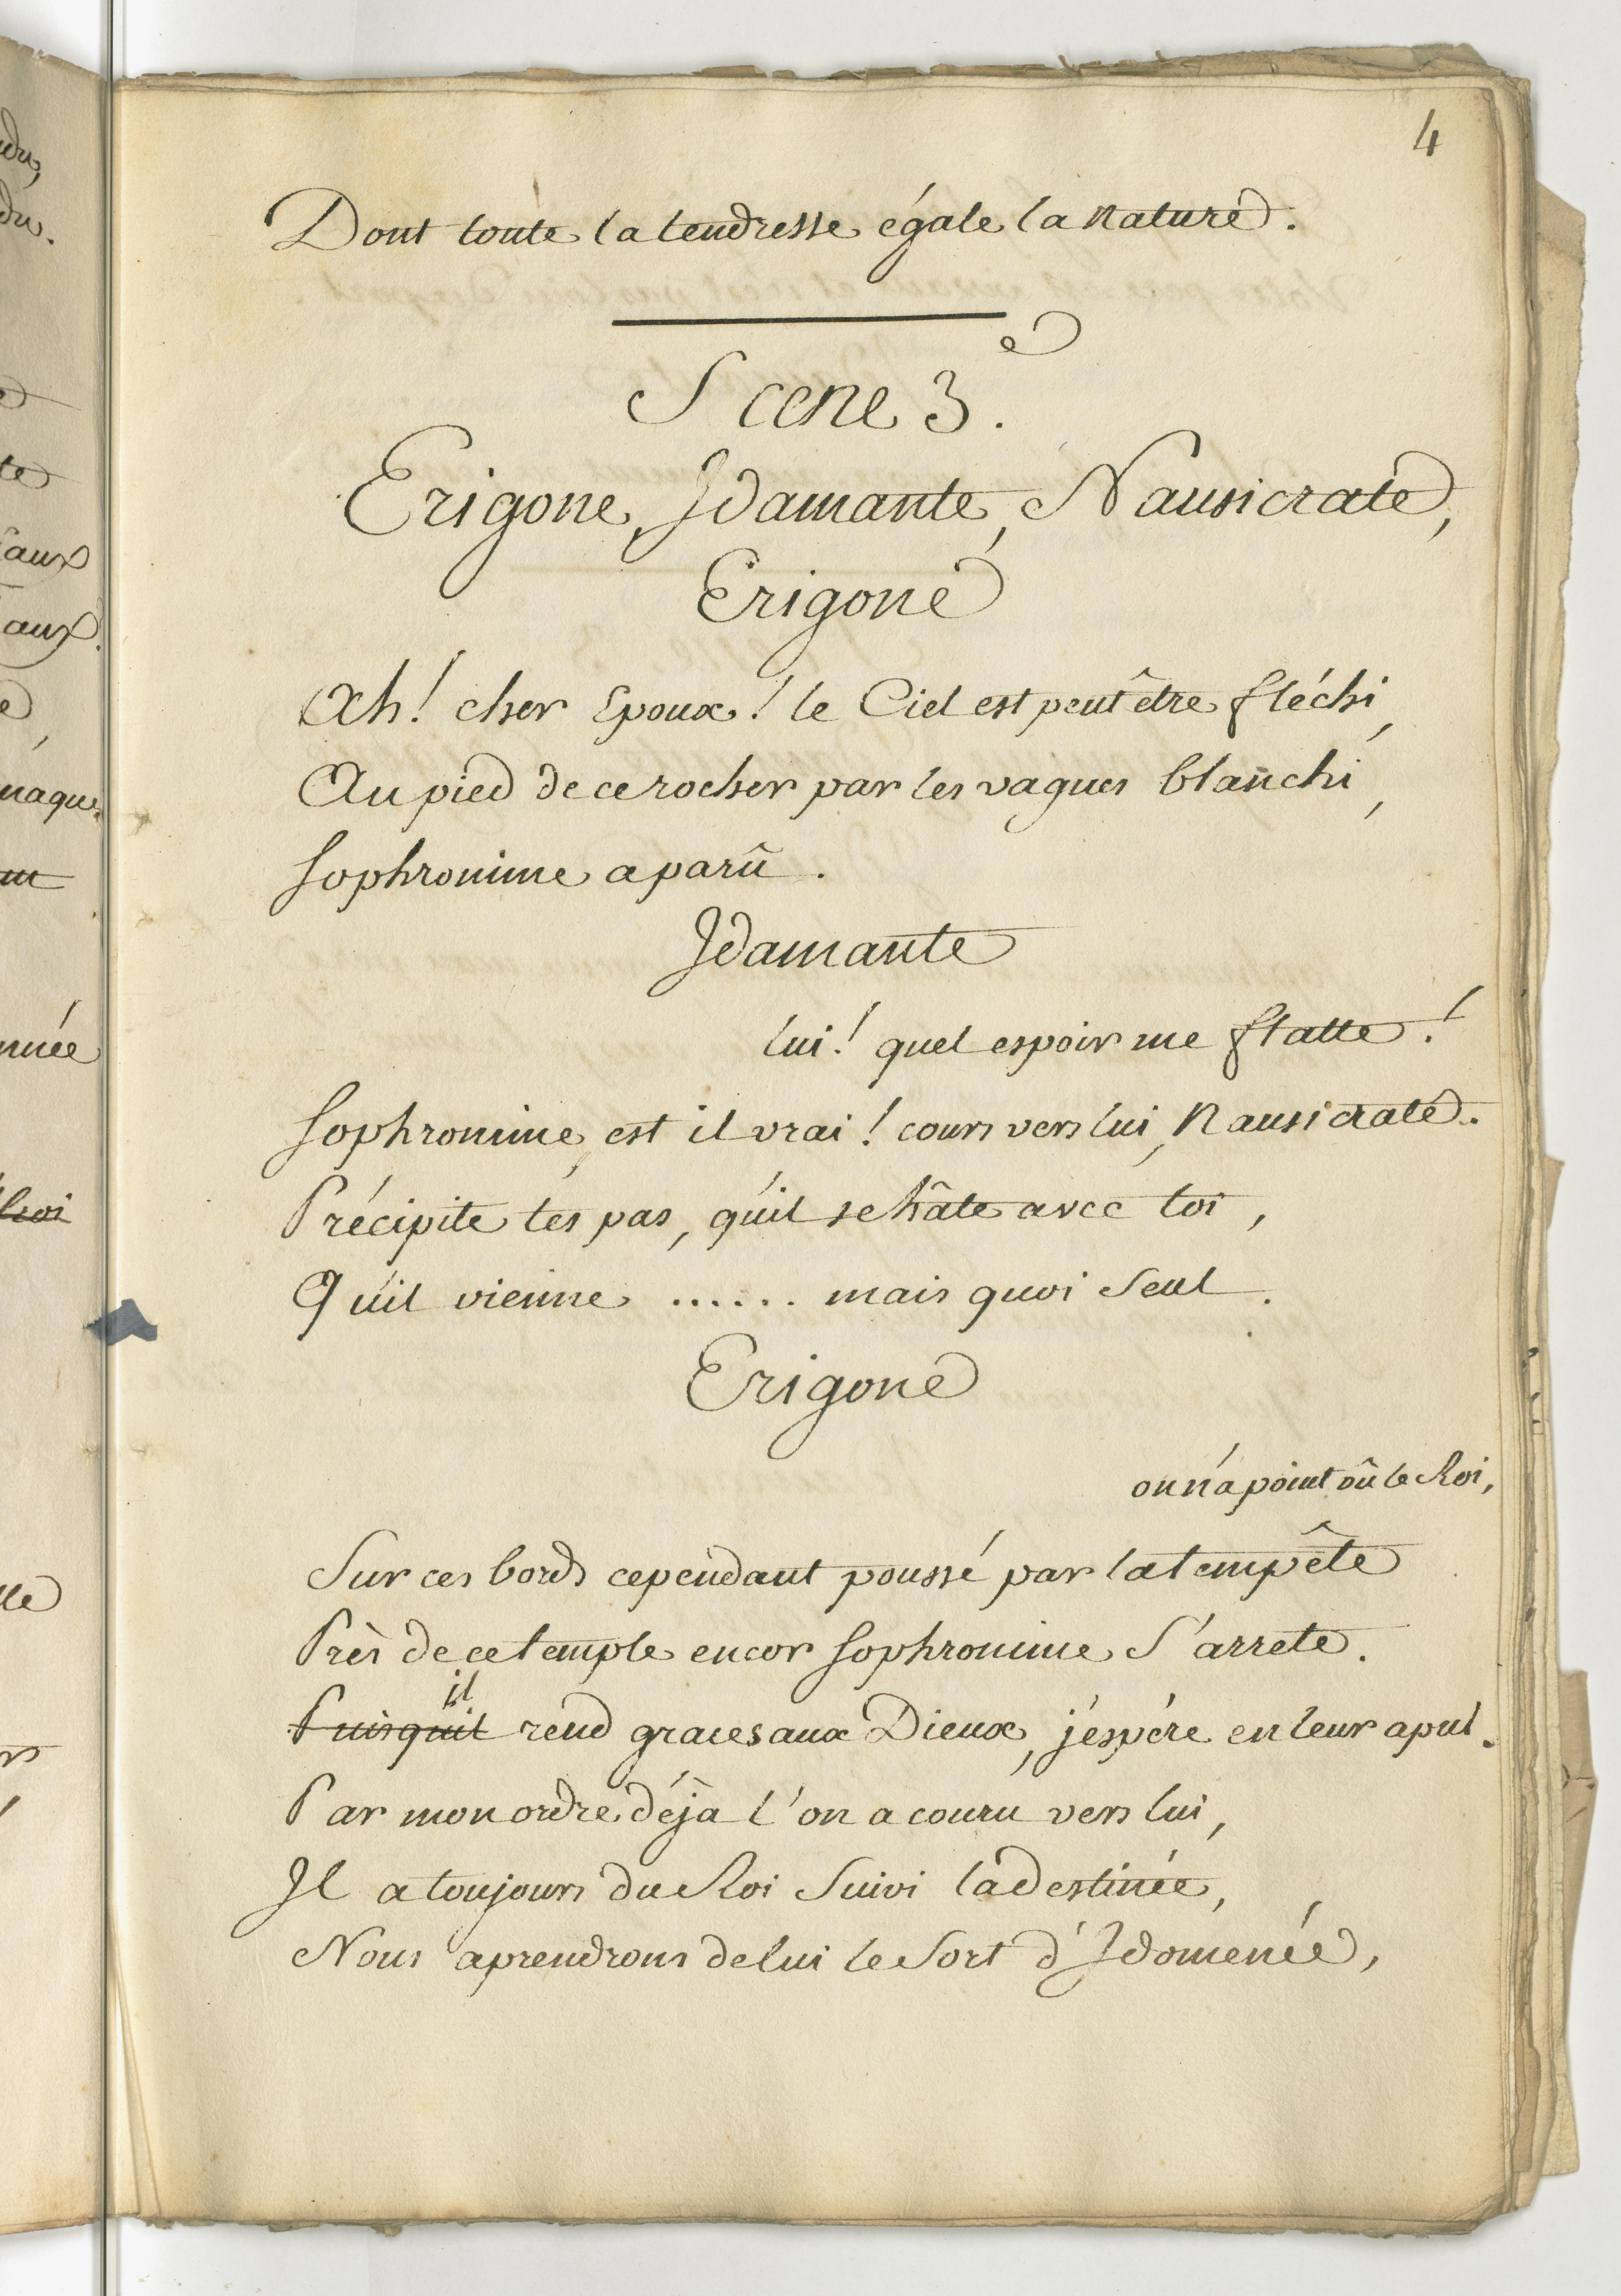 4
Dont toute la tendresse égale la nature.
Scene 3.e
Erigone, Idamante, Nausicrate,
Erigone
Ah! cher Epoux! le Ciel est peutêtre fléchi,
Au pied de ce rocher par les vagues blanchi,
Sophronime a parû.
Idamante
lui! quel espoir me flatte!
Sophronime, est il vrai! cours vers lui, Nausicrate.
Précipite tes pas, qu'il se hâte avec toi,
Qu'il vienne ...... mais quoi Seul.
Erigone
on n'a point vû le Roi,
Sur ces bords cependant poussé par la tempête
Près de ce temple encor Sophronime S'arrete.
il
Puisqu'il rend graces aux Dieux, j'espére en leur apui.
Par mon ordre déjà l'on a couru vers lui,
Il a toujours du Roi Suivi la destinée,
Nous aprendrons de lui le Sort d'Idomenée,